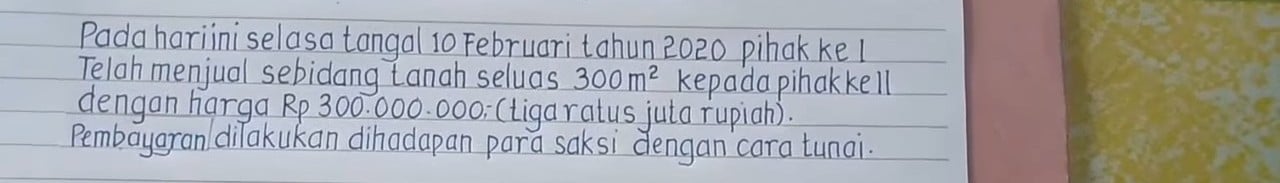 Pada hari ini selasa tangal 10 Februari tahun 2020 pihak ke 1
Telah menjual sebidang tanah seluas 300 m² kepada pihak ke 11
dengan harga Rp 300.000.000; (tiga ratus juta rupiah).
Pembayaran dilakukan dihadapan para saksi dengan cara tunai.